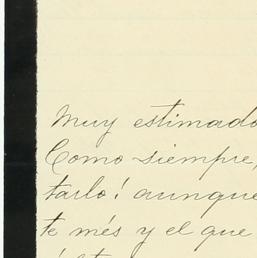 Muy estimado
Como siempre,
tarlo! aunque
te més y el que